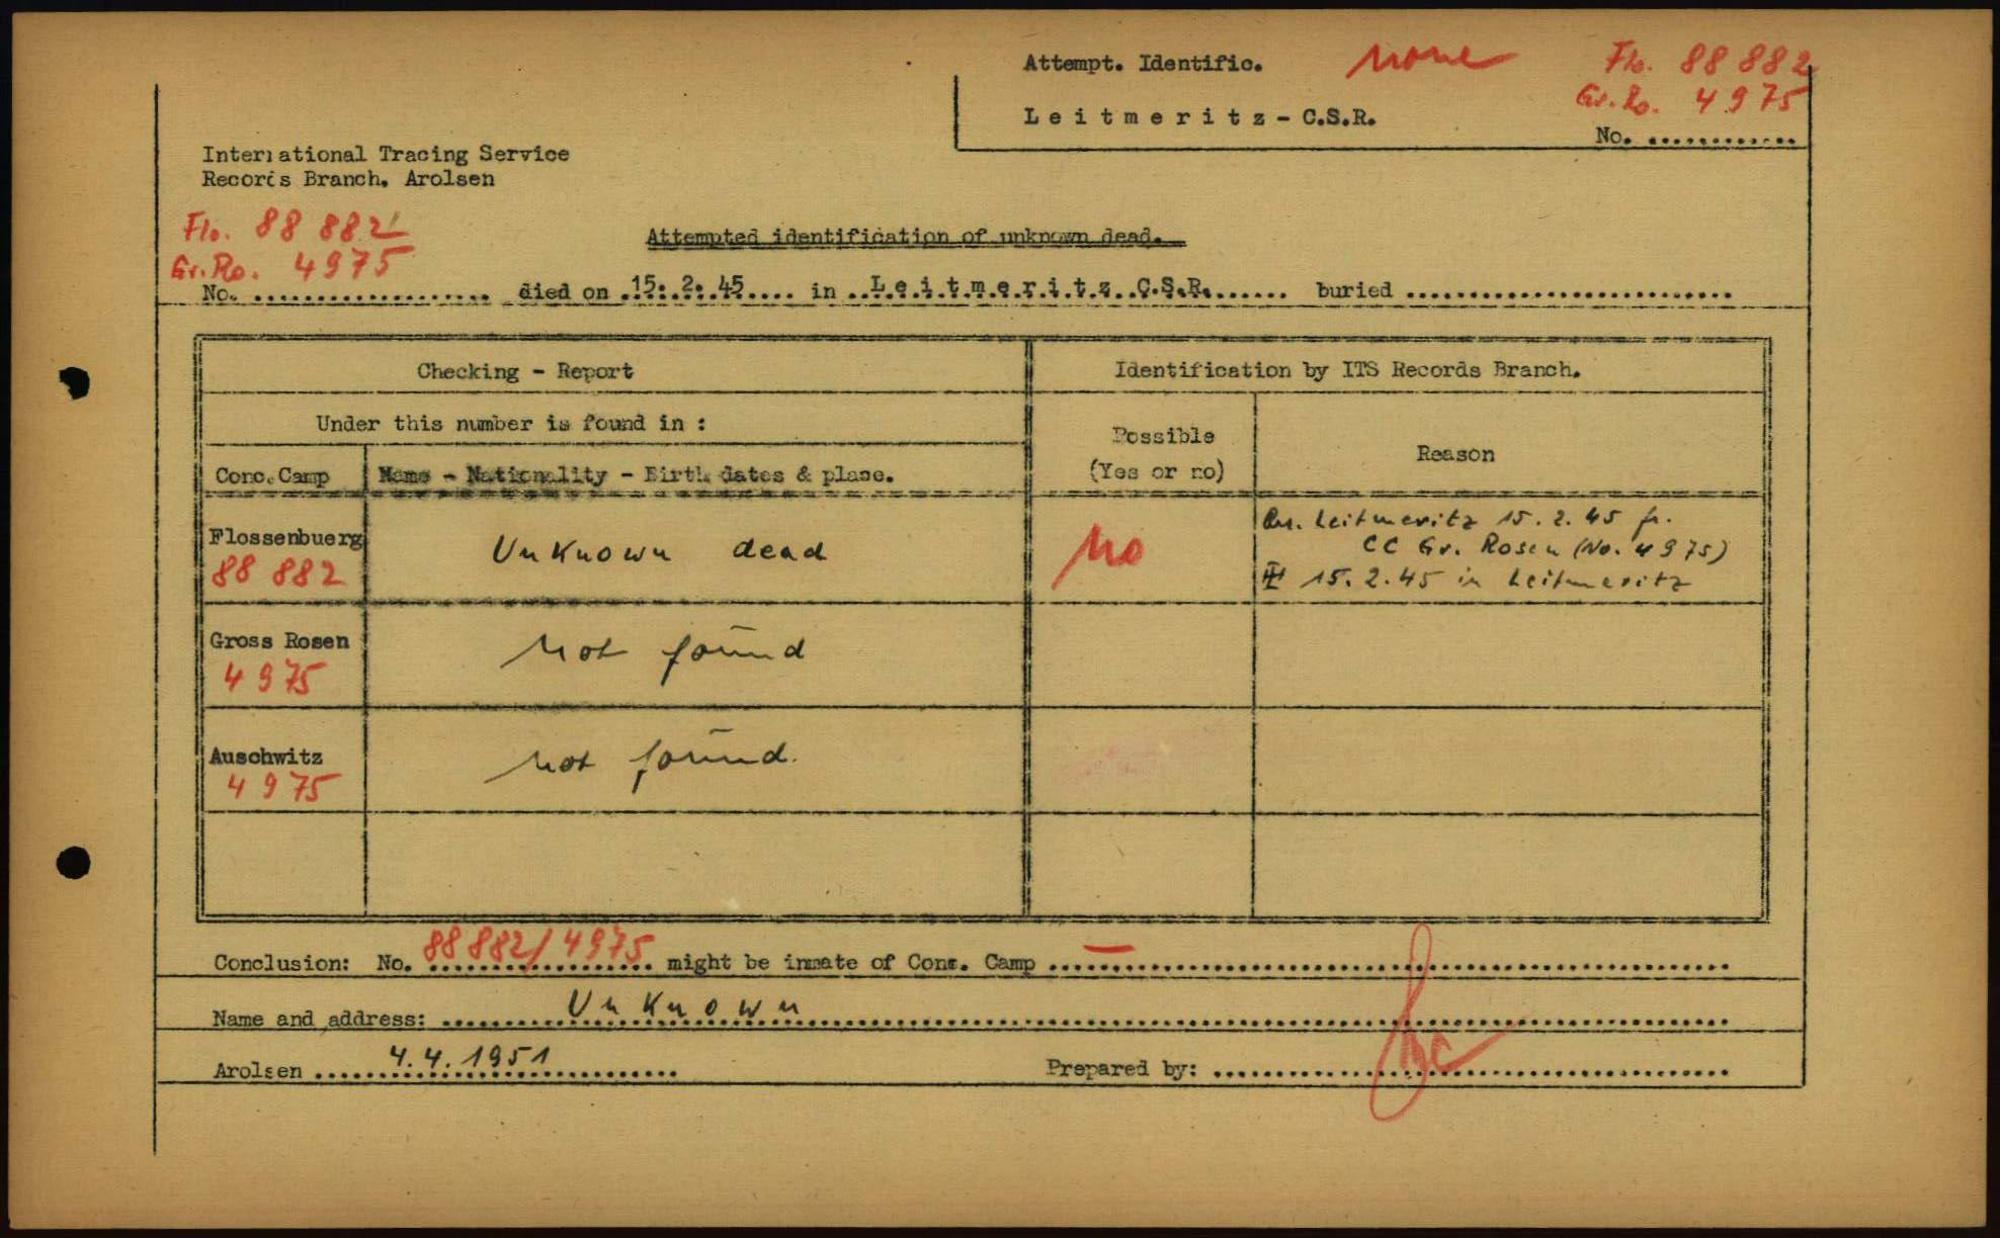 Attempt. Identific. none Flo. 88 882
Gr. Ro. 4975
Leitmeritz - C.S.R.
No. ............
International Tracing Service
Records Branch. Arolsen
Flo. 88 882
Gr. Ro. 4975
Attempted identification of unknown dead.
No. .................. died on 15. 2. 45 in Leitmeritz C.S.R. buried ..........................
Checking - Report
Identification by ITS Records Branch.
Under this number is found in :
Possible
(Yes or no)
Reason
Conc. Camp
Name - Nationality - Birth dates & place.
Flossenbuerg
88 882
Unknown dead
no
Arr. Leitmeritz 15. 2. 45 fr.
CC Gr. Rosen (No. 4975)
15. 2. 45 in Leitmeritz
Gross Rosen
4975
not found
Auschwitz
4975
not found.
Conclusion: No. 88 882 / 4975 might be inmate of Conc. Camp —
Name and address: Unknown
Arolsen 4. 4. 1951
Prepared by: